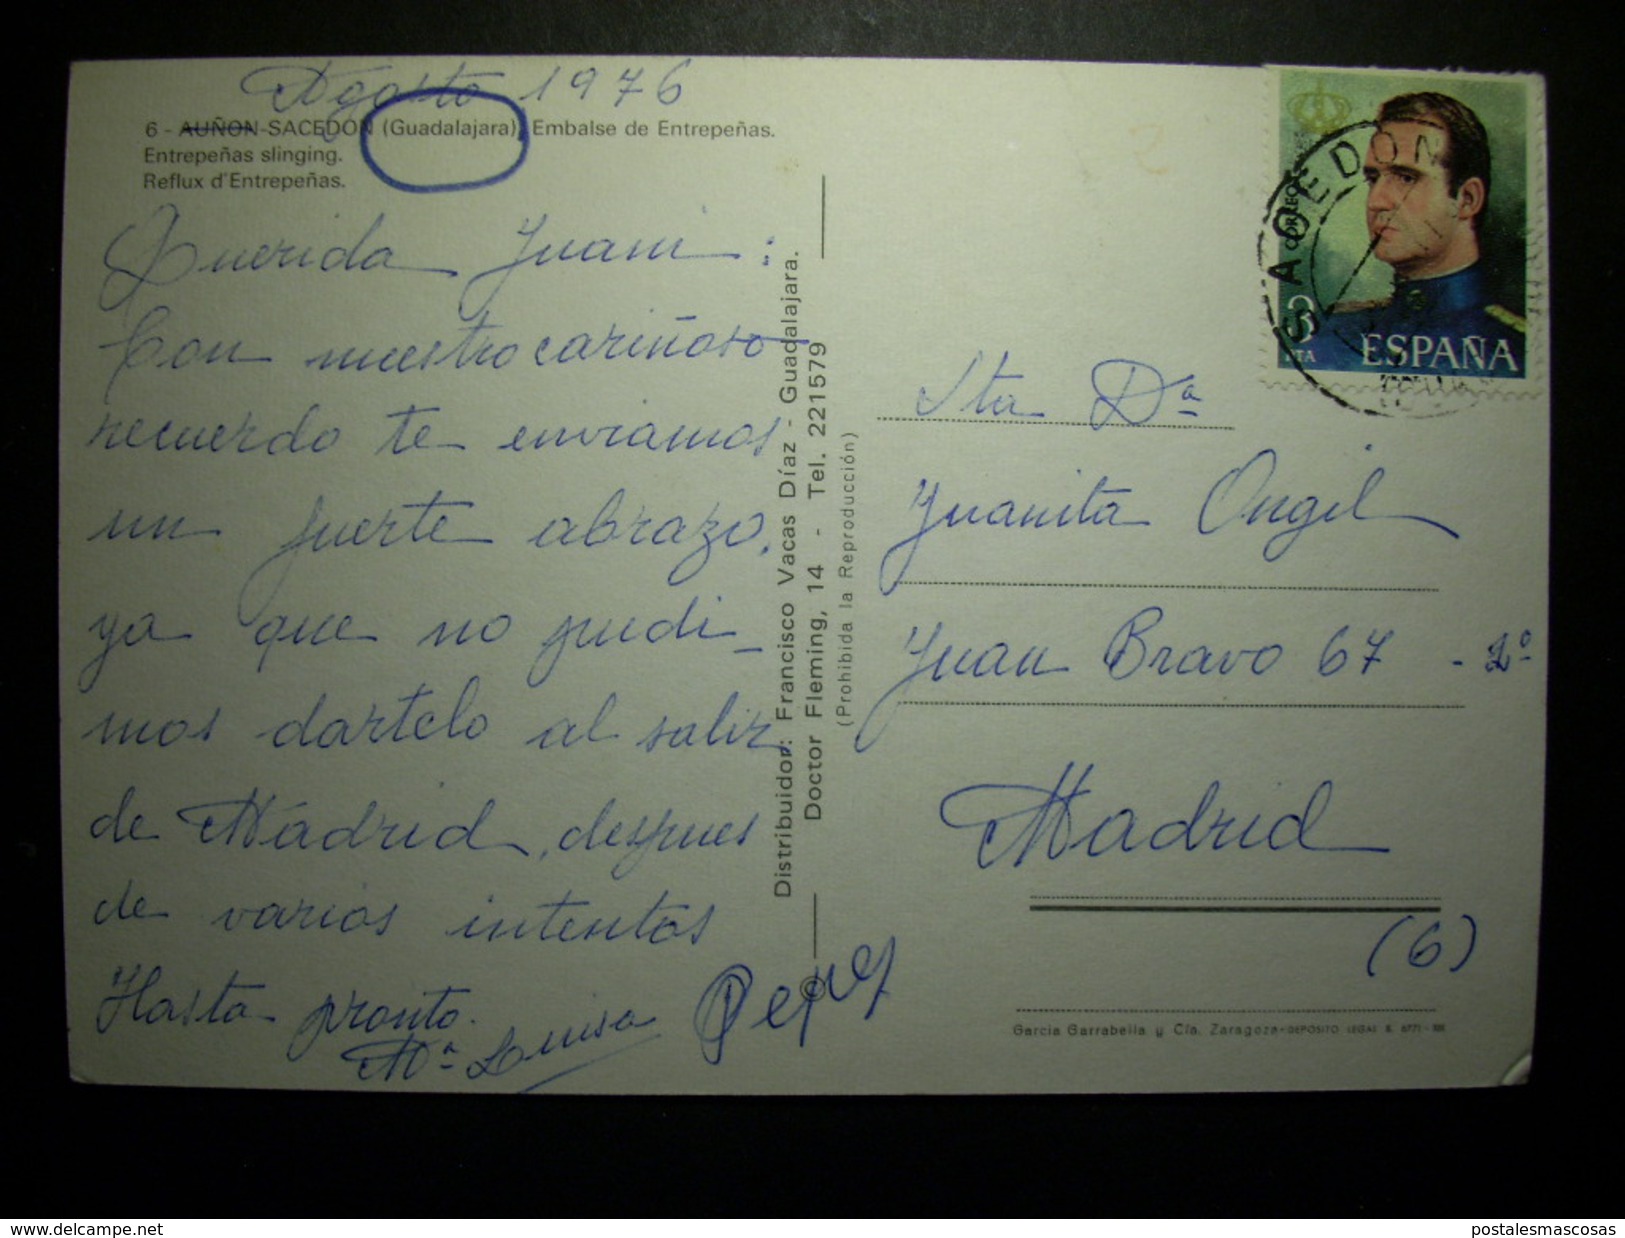 Agosto 1976
6 - AUÑON-SACEDON (Guadalajara) Embalse de Entrepeñas.
Entrepeñas slinging.
Reflux d'Entrepeñas.
Querida Juani :
Con nuestro cariñoso
recuerdo te enviamos
un fuerte abrazo,
ya que no pudi-
mos dartelo al salir
de Madrid, despues
de varios intentos
Hasta pronto.
Mª Luisa Pepe
Distribuidor: Francisco Vacas Díaz - Guadalajara.
Doctor Fleming, 14 - Tel. 221579
(Prohibida la Reproducción)
SACEDON
CORREOS
3
PTA
ESPAÑA
Sta Dª
Juanita Ongil
Juan Bravo 67 - 2º
Madrid
(6)
Garcia Garrabella y Cía. Zaragoza-DEPOSITO LEGAL B. 6771-XIX
www.delcampe.net
postalesmascosas